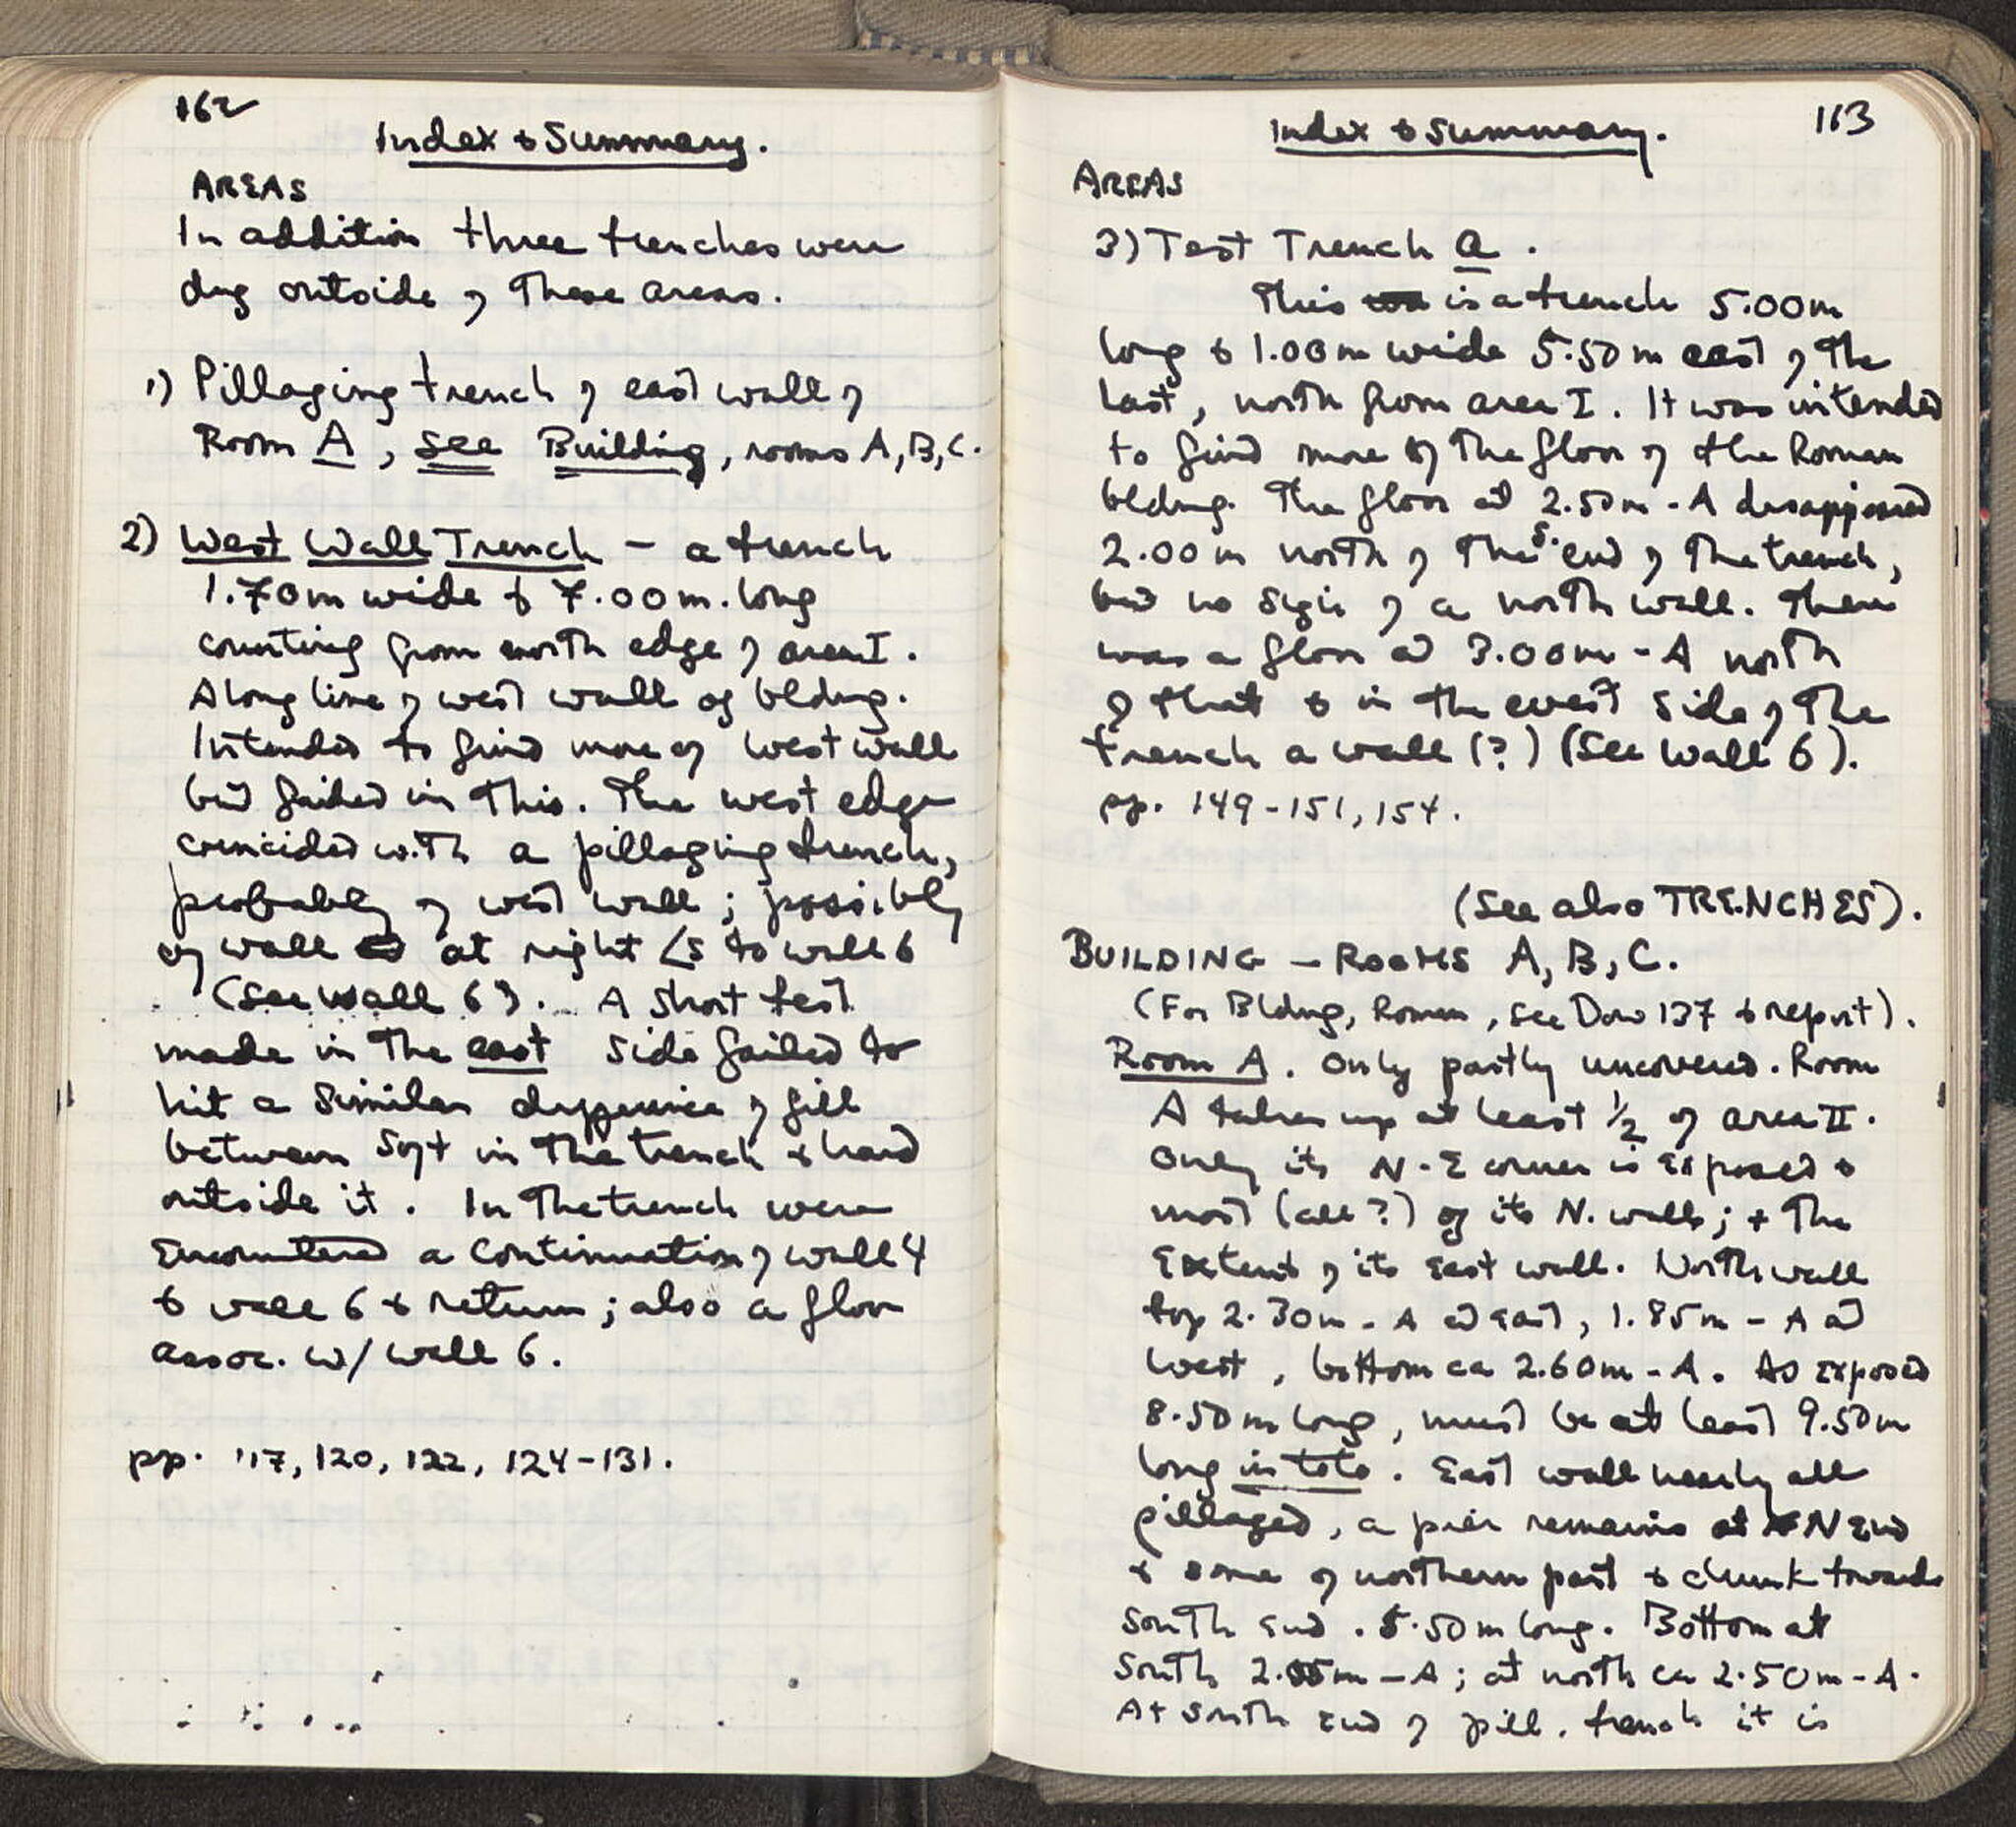 162
Index & Summary.
AREAS
In addition three trenches were
dug outside of these areas.
1) Pillaging trench of east wall of
Room A, see Building, rooms A, B, C.
2) West Wall Trench - a trench
1.70m wide & 7.00m. long
counting from north edge of area I.
Along line of west wall of bldng.
Intended to find more of west wall
but failed in this. The west edge
coincided with a pillaging trench,
probably of west wall; possibly
of wall at right ∠s to wall 6
(see wall 6). A short test
made in the east side failed to
hit a similar difference of fill
between soft in the trench & hard
outside it. In the trench were
encountered a continuation of wall 4
& wall 6 & return; also a floor
assoc. w/ wall 6.
pp. 117, 120, 122, 124-131.
Index & Summary. 163
AREAS
3) Test Trench a.
This is a trench 5.00m
long & 1.00m wide 5.50m east of the
last, north from area I. It was intended
to find more of the floor of the Roman
bldng. The floor at 2.50m - A disappeared
2.00m north of the S. end of the trench,
but no sign of a north wall. There
was a floor at 3.00m - A north
of that & in the west side of the
trench a wall (?) (see wall 6).
pp. 149-151, 154.
(See also TRENCHES).
BUILDING - ROOMS A, B, C.
(For Bldng, Roman, see Dow 137 & report).
Room A. Only partly uncovered. Room
A takes up at least 1/2 of area II.
Only its N-E corner is exposed &
most (all?) of its N. wall; & the
extent of its east wall. North wall
top 2.30m - A at east, 1.85m - A at
west, bottom ca 2.60m - A. As exposed
8.50m long, must be at least 9.50m
long in toto. East wall nearly all
pillaged, a pier remains at N end
& some of northern part & chunk towards
south end. 5.50m long. Bottom at
south m - A; at north ca 2.50m - A.
At south end of pill. trench it is